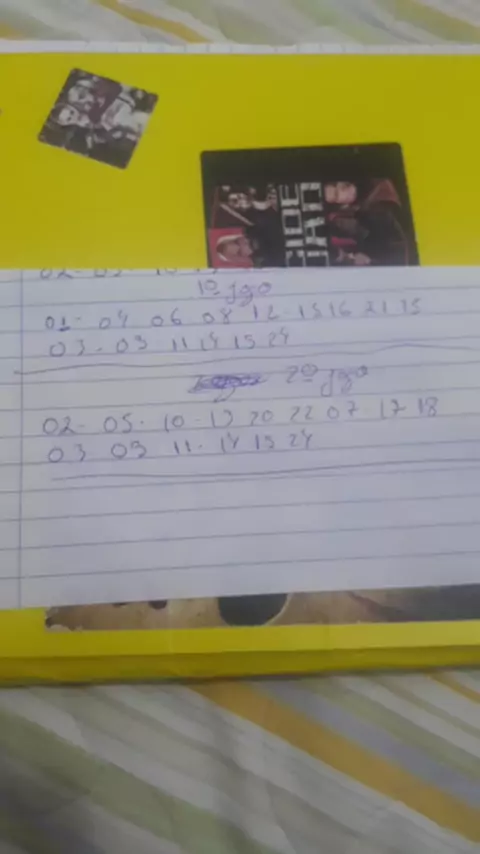 1º jgo
01- 04 06 08 12 - 16 21 25
03 - 09 11 14 15 24
2º jgo
02- 05- 10 - 13 20 22 07 - 17 18
03 09 11- 14 15 24